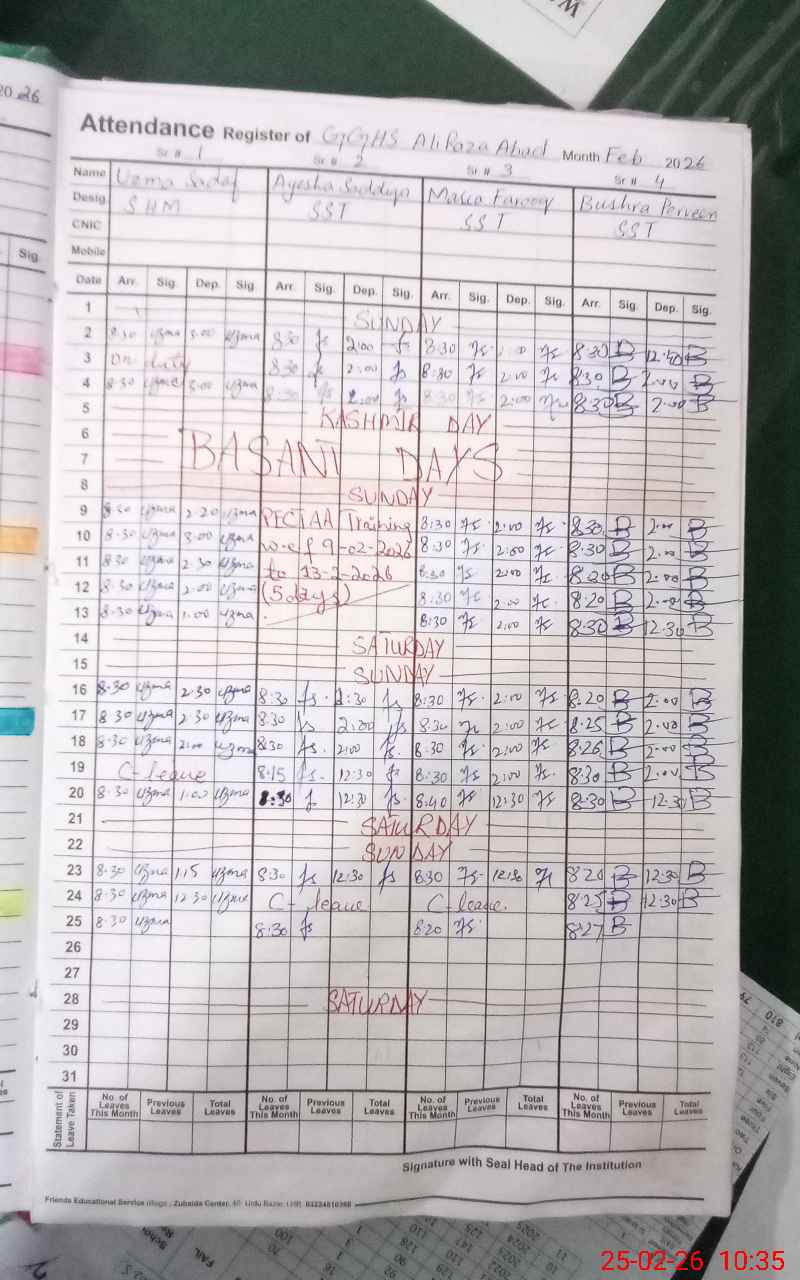 2026
Attendance Register of GGHS Ali Raza Abad Month Feb 2026
Sr # 1 Sr # 2 Sr # 3 Sr # 4
Name Uzma Sadaf Ayesha Saddiqa Farooq Bushra Parveen
Desig. SHM SST SST SST
CNIC
Mobile
Sig.
Date Arr. Sig. Dep. Sig. Arr. Sig. Dep. Sig. Arr. Sig. Dep. Sig. Arr. Sig. Dep. Sig.
1 SUNDAY
2 8:30 uzma 3:00 uzma 8:30 2:00 8:30 8:30 B 12:40 B
3 On duty 8:30 2:00 8:30 2:00 8:30 B 2:00 B
4 8:30 uzma 3:00 uzma 8:30 2:00 8:30 2:00 8:30 B 2:00 B
5 KASHMIR DAY
6
7 BASANT DAYS
8 SUNDAY
9 8:30 uzma 2:20 uzma PECTAA Training 8:30 2:00 8:30 B 2:00 B
10 8:30 uzma 3:00 uzma w.e.f 9-02-2026 8:30 2:00 8:30 B 2:00 B
11 8:30 uzma 2:30 uzma to 13-2-2026 8:30 2:00 8:20 B 2:00 B
12 8:30 uzma 2:00 uzma (5 days) 8:30 2:00 8:20 B 2:00 B
13 8:30 uzma 1:00 uzma 8:30 2:00 8:30 B 12:30 B
14 SATURDAY
15 SUNDAY
16 8:30 uzma 2:30 uzma 8:30 2:30 8:30 2:00 8:20 B 2:00 B
17 8:30 uzma 2:30 uzma 8:30 2:00 8:30 2:00 8:25 B 2:00 B
18 8:30 uzma 2:00 uzma 8:30 2:00 8:30 2:00 8:26 B 2:00 B
19 C-leave 8:15 12:30 8:30 2:00 8:30 B 2:00 B
20 8:30 uzma 1:00 uzma 8:30 12:30 8:40 12:30 8:30 B 12:30 B
21 SATURDAY
22 SUNDAY
23 8:30 uzma 1:15 uzma 8:30 12:30 8:30 12:30 8:20 B 12:30 B
24 8:30 uzma 12:30 uzma C-leave C-leave. 8:25 B 12:30 B
25 8:30 uzma 8:30 8:20 8:27 B
26
27
28 SATURDAY
29
30
31
Statement of Leave Taken
No. of Leaves This Month Previous Leaves Total Leaves No. of Leaves This Month Previous Leaves Total Leaves No. of Leaves This Month Previous Leaves Total Leaves No. of Leaves This Month Previous Leaves Total Leaves
Signature with Seal Head of The Institution
Friends Educational Service Zubaida Center, 40 Urdu Bazar,
FAIL
25-02-26 10:35